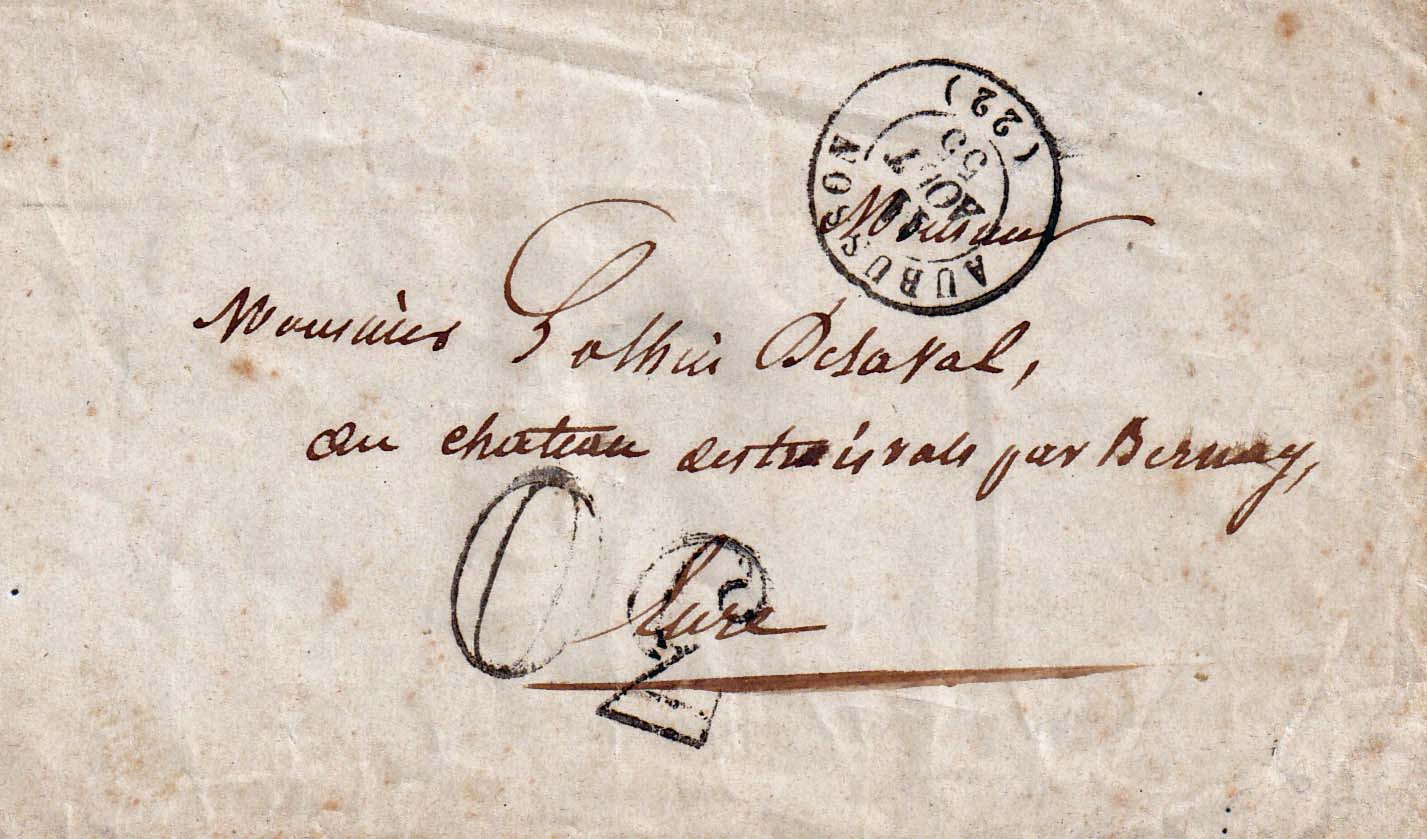 AUBUSSON (22)
11
AOUT
55
Monsieur
Monsieur Pothin Delaval,
au chateau des trois vals par Bernay,
Eure